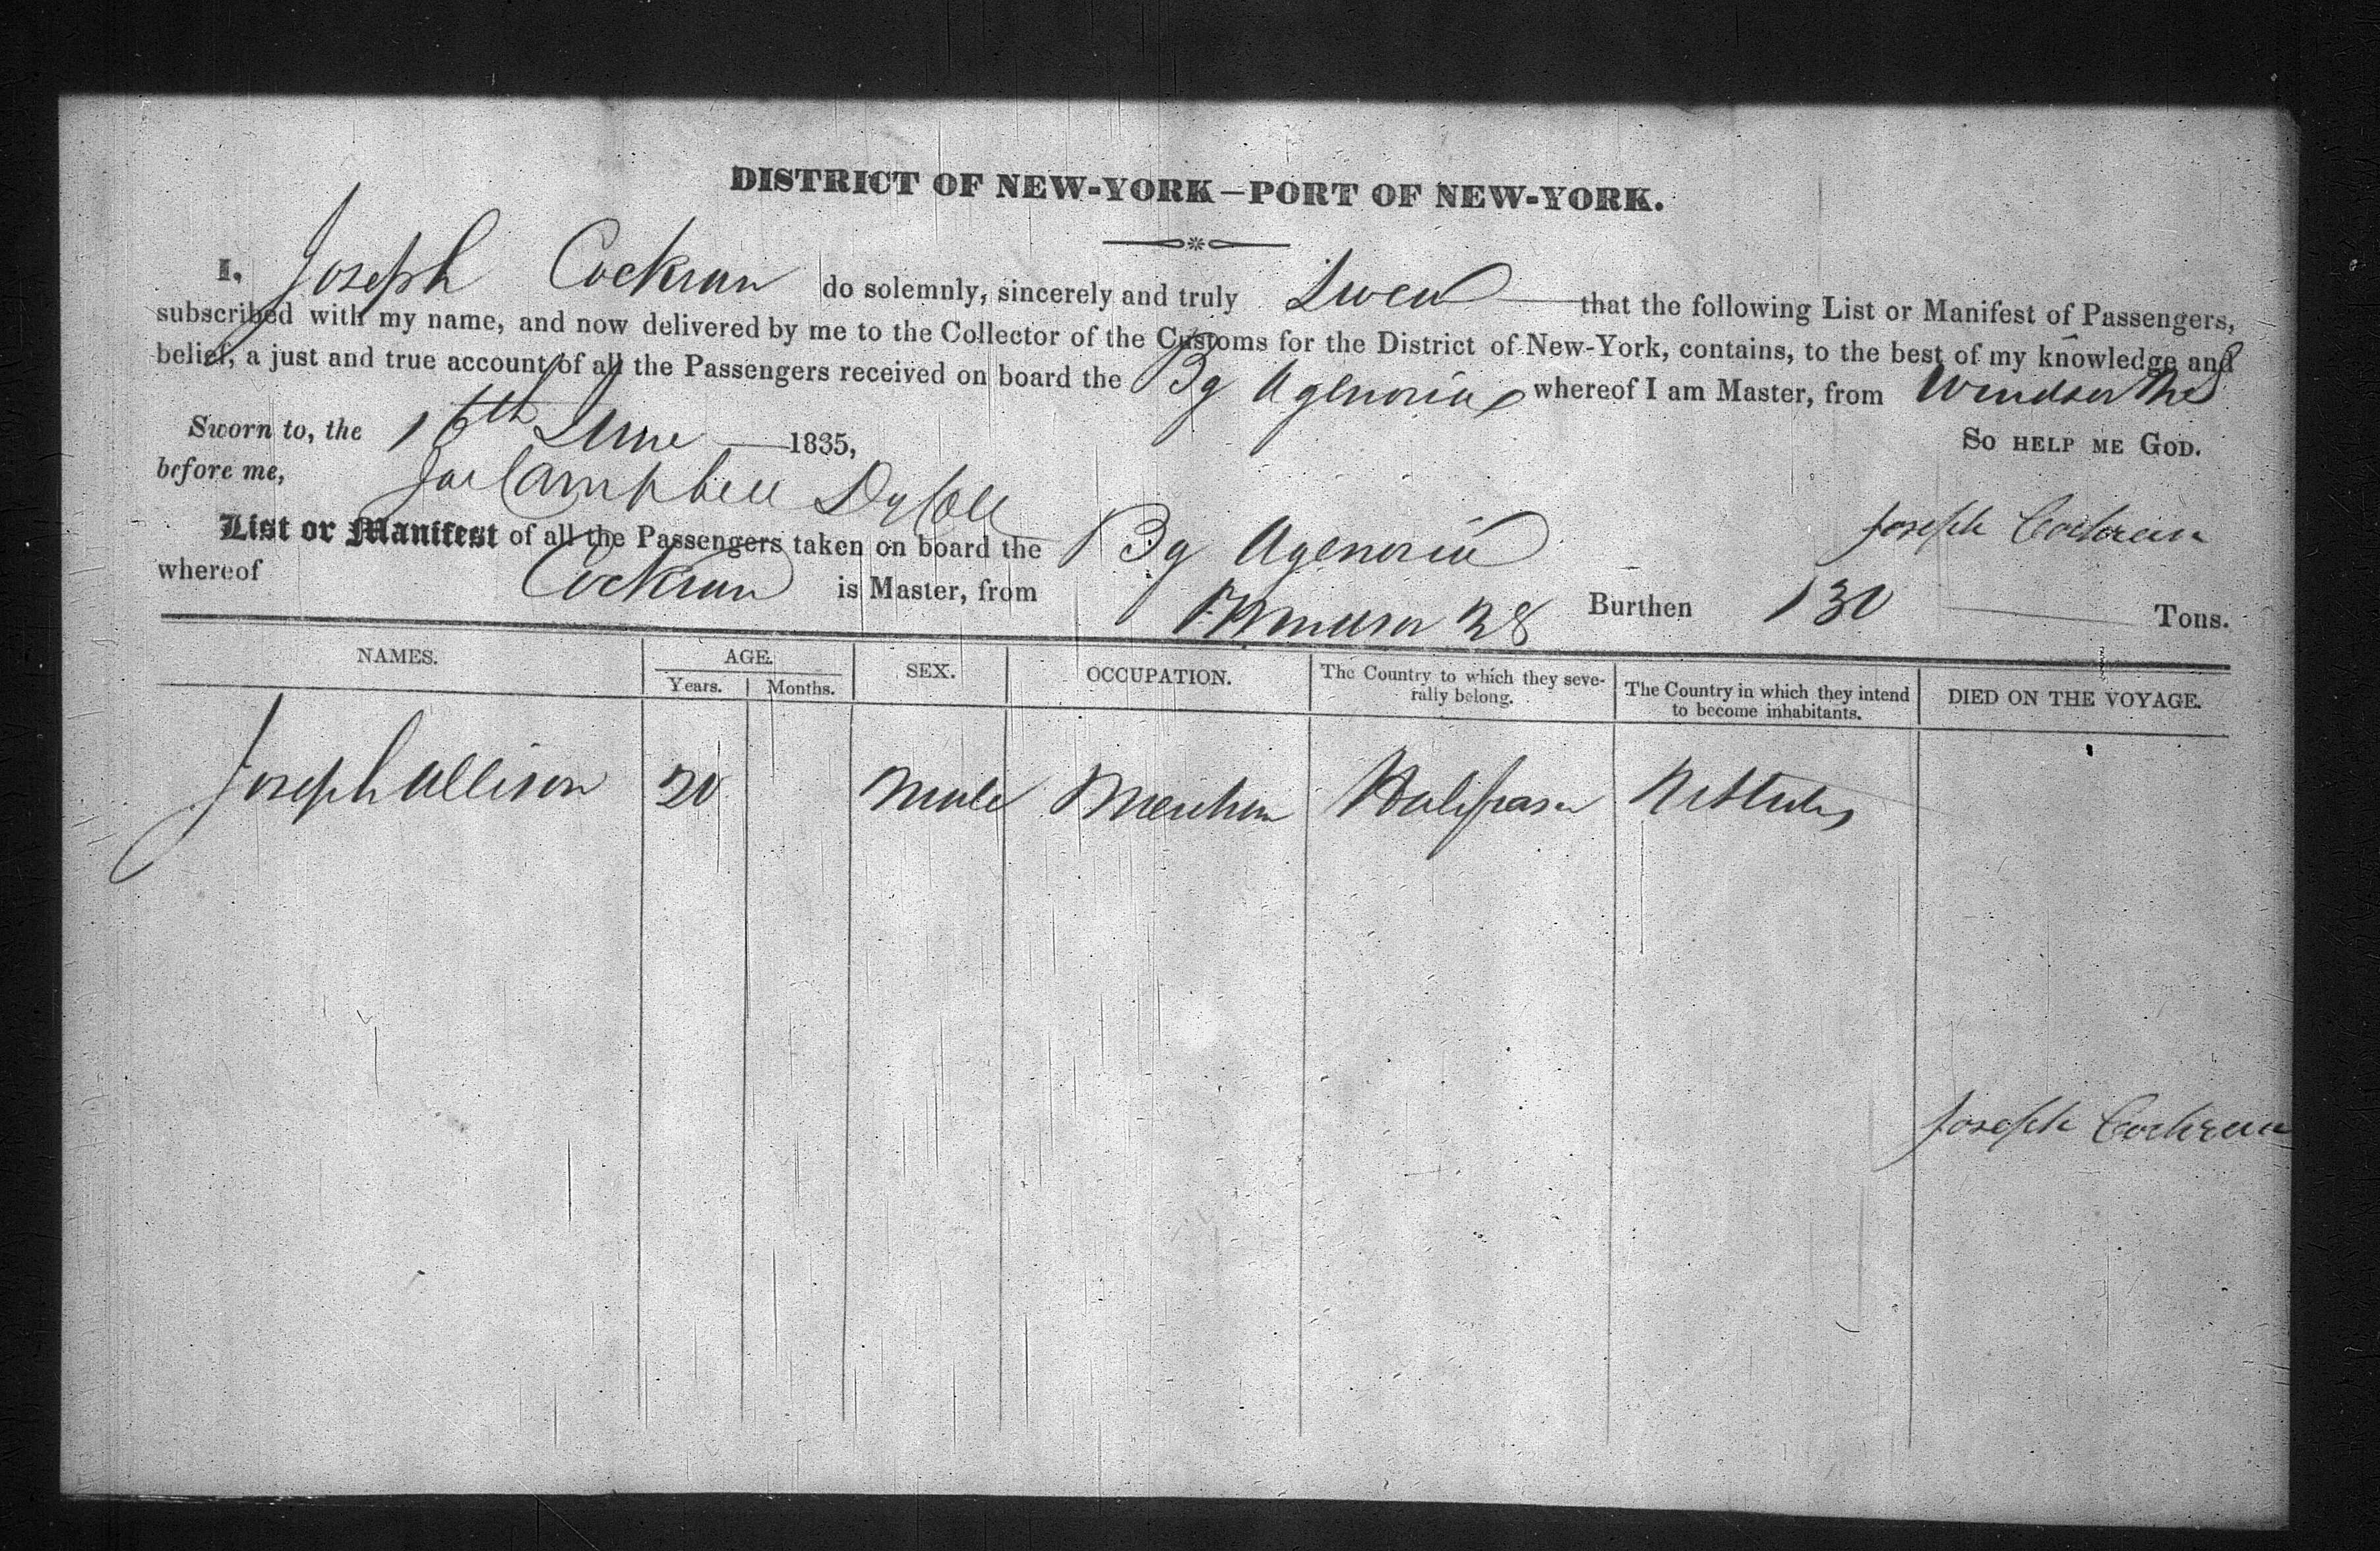 DISTRICT OF NEW-YORK—PORT OF NEW-YORK.
I, Joseph Cockran do solemnly, sincerely and truly Swear that the following List or Manifest of Passengers,
subscribed with my name, and now delivered by me to the Collector of the Customs for the District of New-York, contains, to the best of my knowledge and
belief, a just and true account of all the Passengers received on board the Bg Agenoria whereof I am Master, from Windsor NS
Sworn to, the 16th June 1835, SO HELP ME GOD.
before me, Campbell Dy Coll
Joseph Cochran
List or Manifest of all the Passengers taken on board the Bg Agenoria
whereof Cockran is Master, from Windsor NS Burthen 130 Tons.
NAMES. AGE. SEX. OCCUPATION. The Country to which they seve- The Country in which they intend DIED ON THE VOYAGE.
Years. Months. rally belong. to become inhabitants.
Joseph Allison 20 Male Halifax
Joseph Cochran